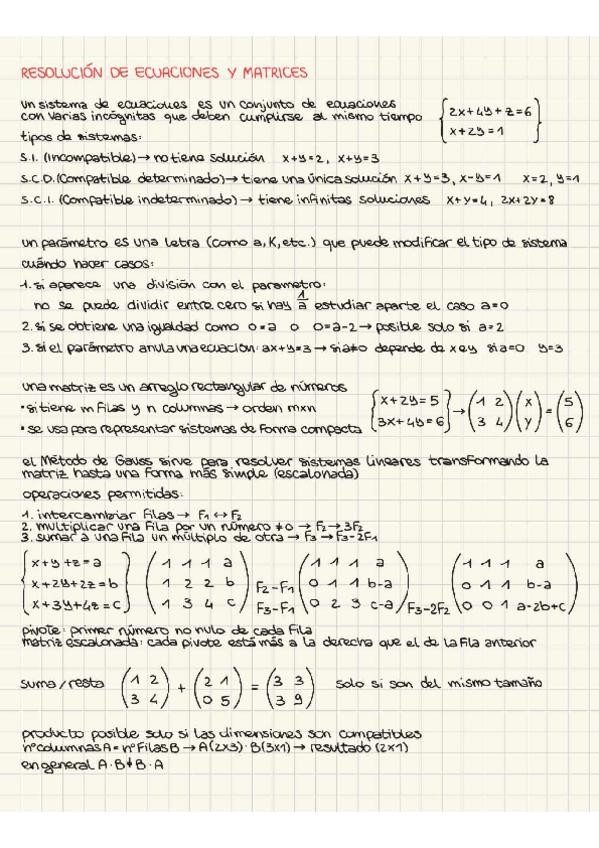 RESOLUCIÓN DE ECUACIONES Y MATRICES
un sistema de ecuaciones es un conjunto de ecuaciones
con varias incógnitas que deben cumplirse al mismo tiempo
{2x+4y+z=6
x+2y=1}
tipos de sistemas:
S.I. (Incompatible)→ no tiene solución x+y=2, x+y=3
S.C.D.(Compatible determinado)→ tiene una única solución x+y=3, x-y=1 x=2, y=1
S.C.I. (Compatible indeterminado)→ tiene infinitas soluciones x+y=4, 2x+2y=8
un parámetro es una letra (como a, K, etc.) que puede modificar el tipo de sistema
cuándo hacer casos:
1. si aparece una división con el parametro:
no se puede dividir entre cero si hay 1/a estudiar aparte el caso a=0
2. si se obtiene una igualdad como 0=a o 0=a-2→ posible solo si a=2
3. si el parámetro anula una ecuación: ax+y=3 → si a≠0 depende de x e y si a=0 y=3
una matriz es un arreglo rectangular de números
• si tiene m filas y n columnas → orden mxn
• se usa para representar sistemas de forma compacta
{x+2y=5
3x+4y=6} → (1 2
3 4) (x
y) = (5
6)
el Método de Gauss sirve para resolver sistemas lineares transformando la
matriz hasta una forma más simple (escalonada)
operaciones permitidas:
1. intercambiar filas → F1 ↔ F2
2. multiplicar una fila por un número ≠0 → F2→3F2
3. sumar a una fila un múltiplo de otra → F3 → F3-2F1
{x+y+z=a
x+2y+2z=b
x+3y+4z=c}
(1 1 1 a
1 2 2 b
1 3 4 c)
F2-F1
F3-F1
(1 1 1 a
0 1 1 b-a
0 2 3 c-a)
F3-2F2
(1 1 1 a
0 1 1 b-a
0 0 1 a-2b+c)
pivote: primer número no nulo de cada fila
matriz escalonada: cada pivote está más a la derecha que el de la fila anterior
suma/resta (1 2
3 4) + (2 1
0 5) = (3 3
3 9) solo si son del mismo tamaño
producto posible solo si las dimensiones son compatibles
nº columnas A = nº Filas B → A(2x3)·B(3x1) → resultado (2x1)
en general A·B≠B·A